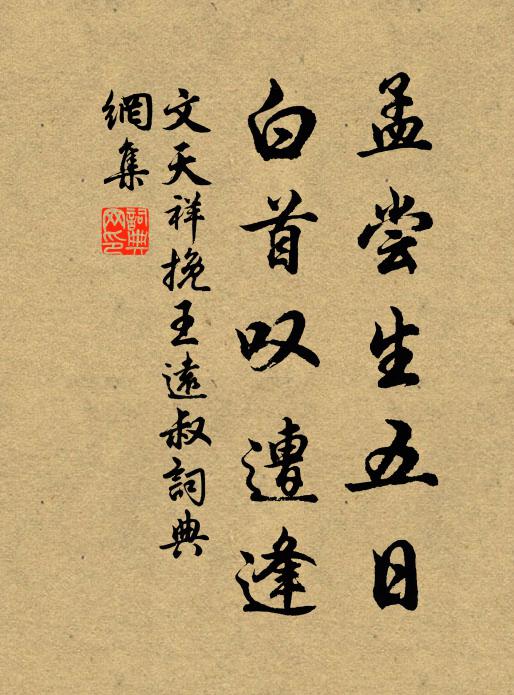 孟尝生五日
白首叹遭逢
文天祥挽王遠叔詞典
網集
詞典
网印